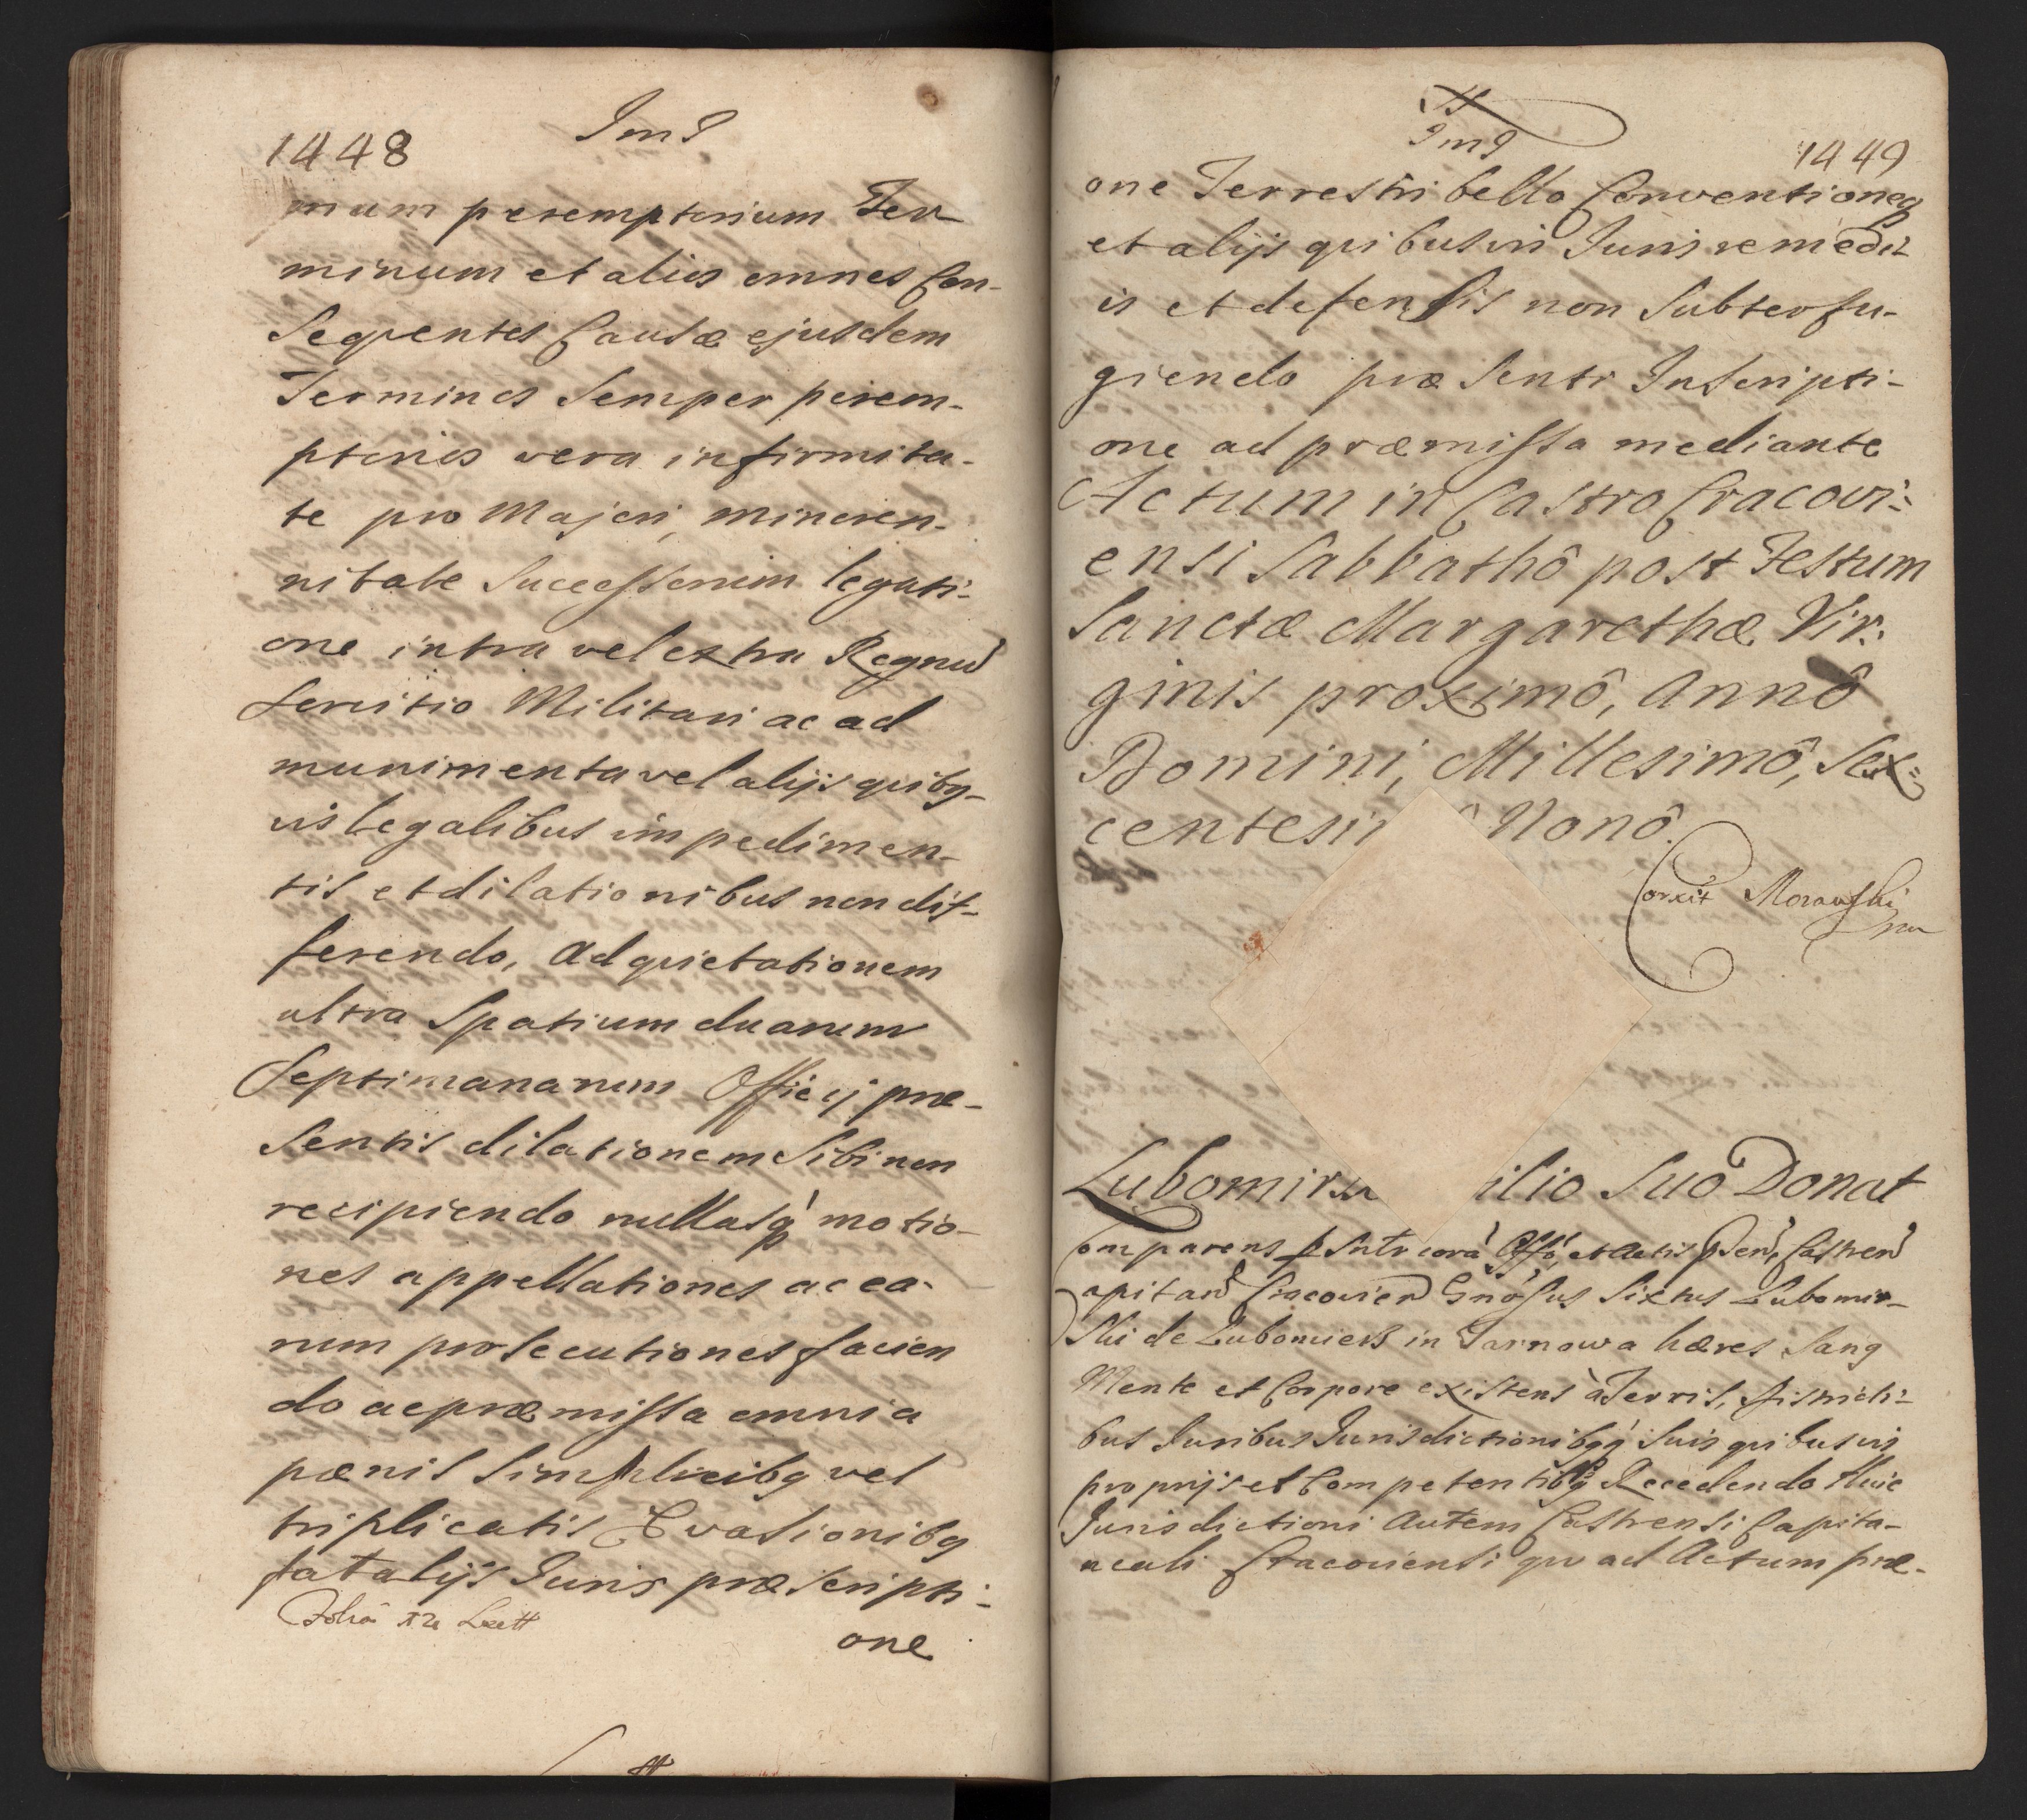 1448
mum peremptorium Ter-
minum et alios omnes Con-
sequentes Causæ ejusdem
Terminos Semper perem-
ptorios vera infirmita-
te pro Majori, minoren-
nitate Successorum legati-
one intra vel extra Regnu
Servitio Militari ac ad
munimenta vel alijs quibq-
vis legalibus impedimen-
tis et dilationibus non dif-
ferendo, Ad quietationem
ultra Spatium duarum
Septimanarum Officij præ-
sentis dilationem Sibi non
recipiendo nullasq motio-
nes appellationes ac ea-
rum prosecutiones facien
do ac præmissa omnia
pænis Simplicibq vel
triplicatis Evasionibq
fatalijs Juris præscripti-
one
1449
one Terrestri bello Conventioneq
et alijs quibusvis Juris remedi-
is et defensis non Subterfu-
giendo præsenti Inscripti-
one ad præmissa mediante
Actum in Castro Cracovi-
ensi Sabbathô post Festum
Sanctæ Margarethæ Vir-
ginis proximô, Annô
Domini, Millesimô, Sex-
centesi ô Nonô.
Corxit Morawski
mp
Lubomirs ilio Suo Donat
Comparens psntr corá Offo, et Actis psen, Castren
Capitan Cracovien Gnosus Sixtus Lubomir-
ski de Lubomierz in Tarnawa hæres Sanq
Mente et Corpore existens à Terris, Districti-
bus Juribus Jurisdictionibqq Suis quibusvis
proprijs et Competentibq Recedendo Huic
Jurisdictioni Autem Castrensi Capita-
neali Cracoviensi quo ad Actum præ-